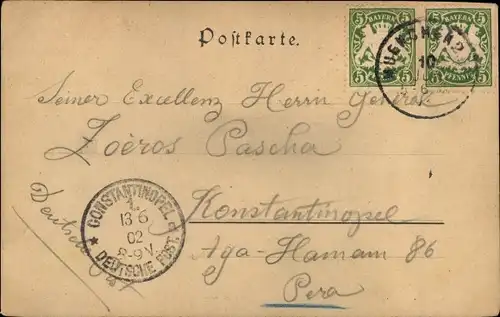 Postkarte.
5 BAYERN 5
5 PFENNIG 5
5 BAYERN 5
5 PFENNIG 5
MUENCHEN 2
10
Seiner Excellenz Herrn General
Zoëros Pascha
Konstantinopel
Aga-Hamam 86
Pera
Deutsche
CONSTANTINOPEL
1.
13 6
02
8-9 V.
* DEUTSCHE POST.